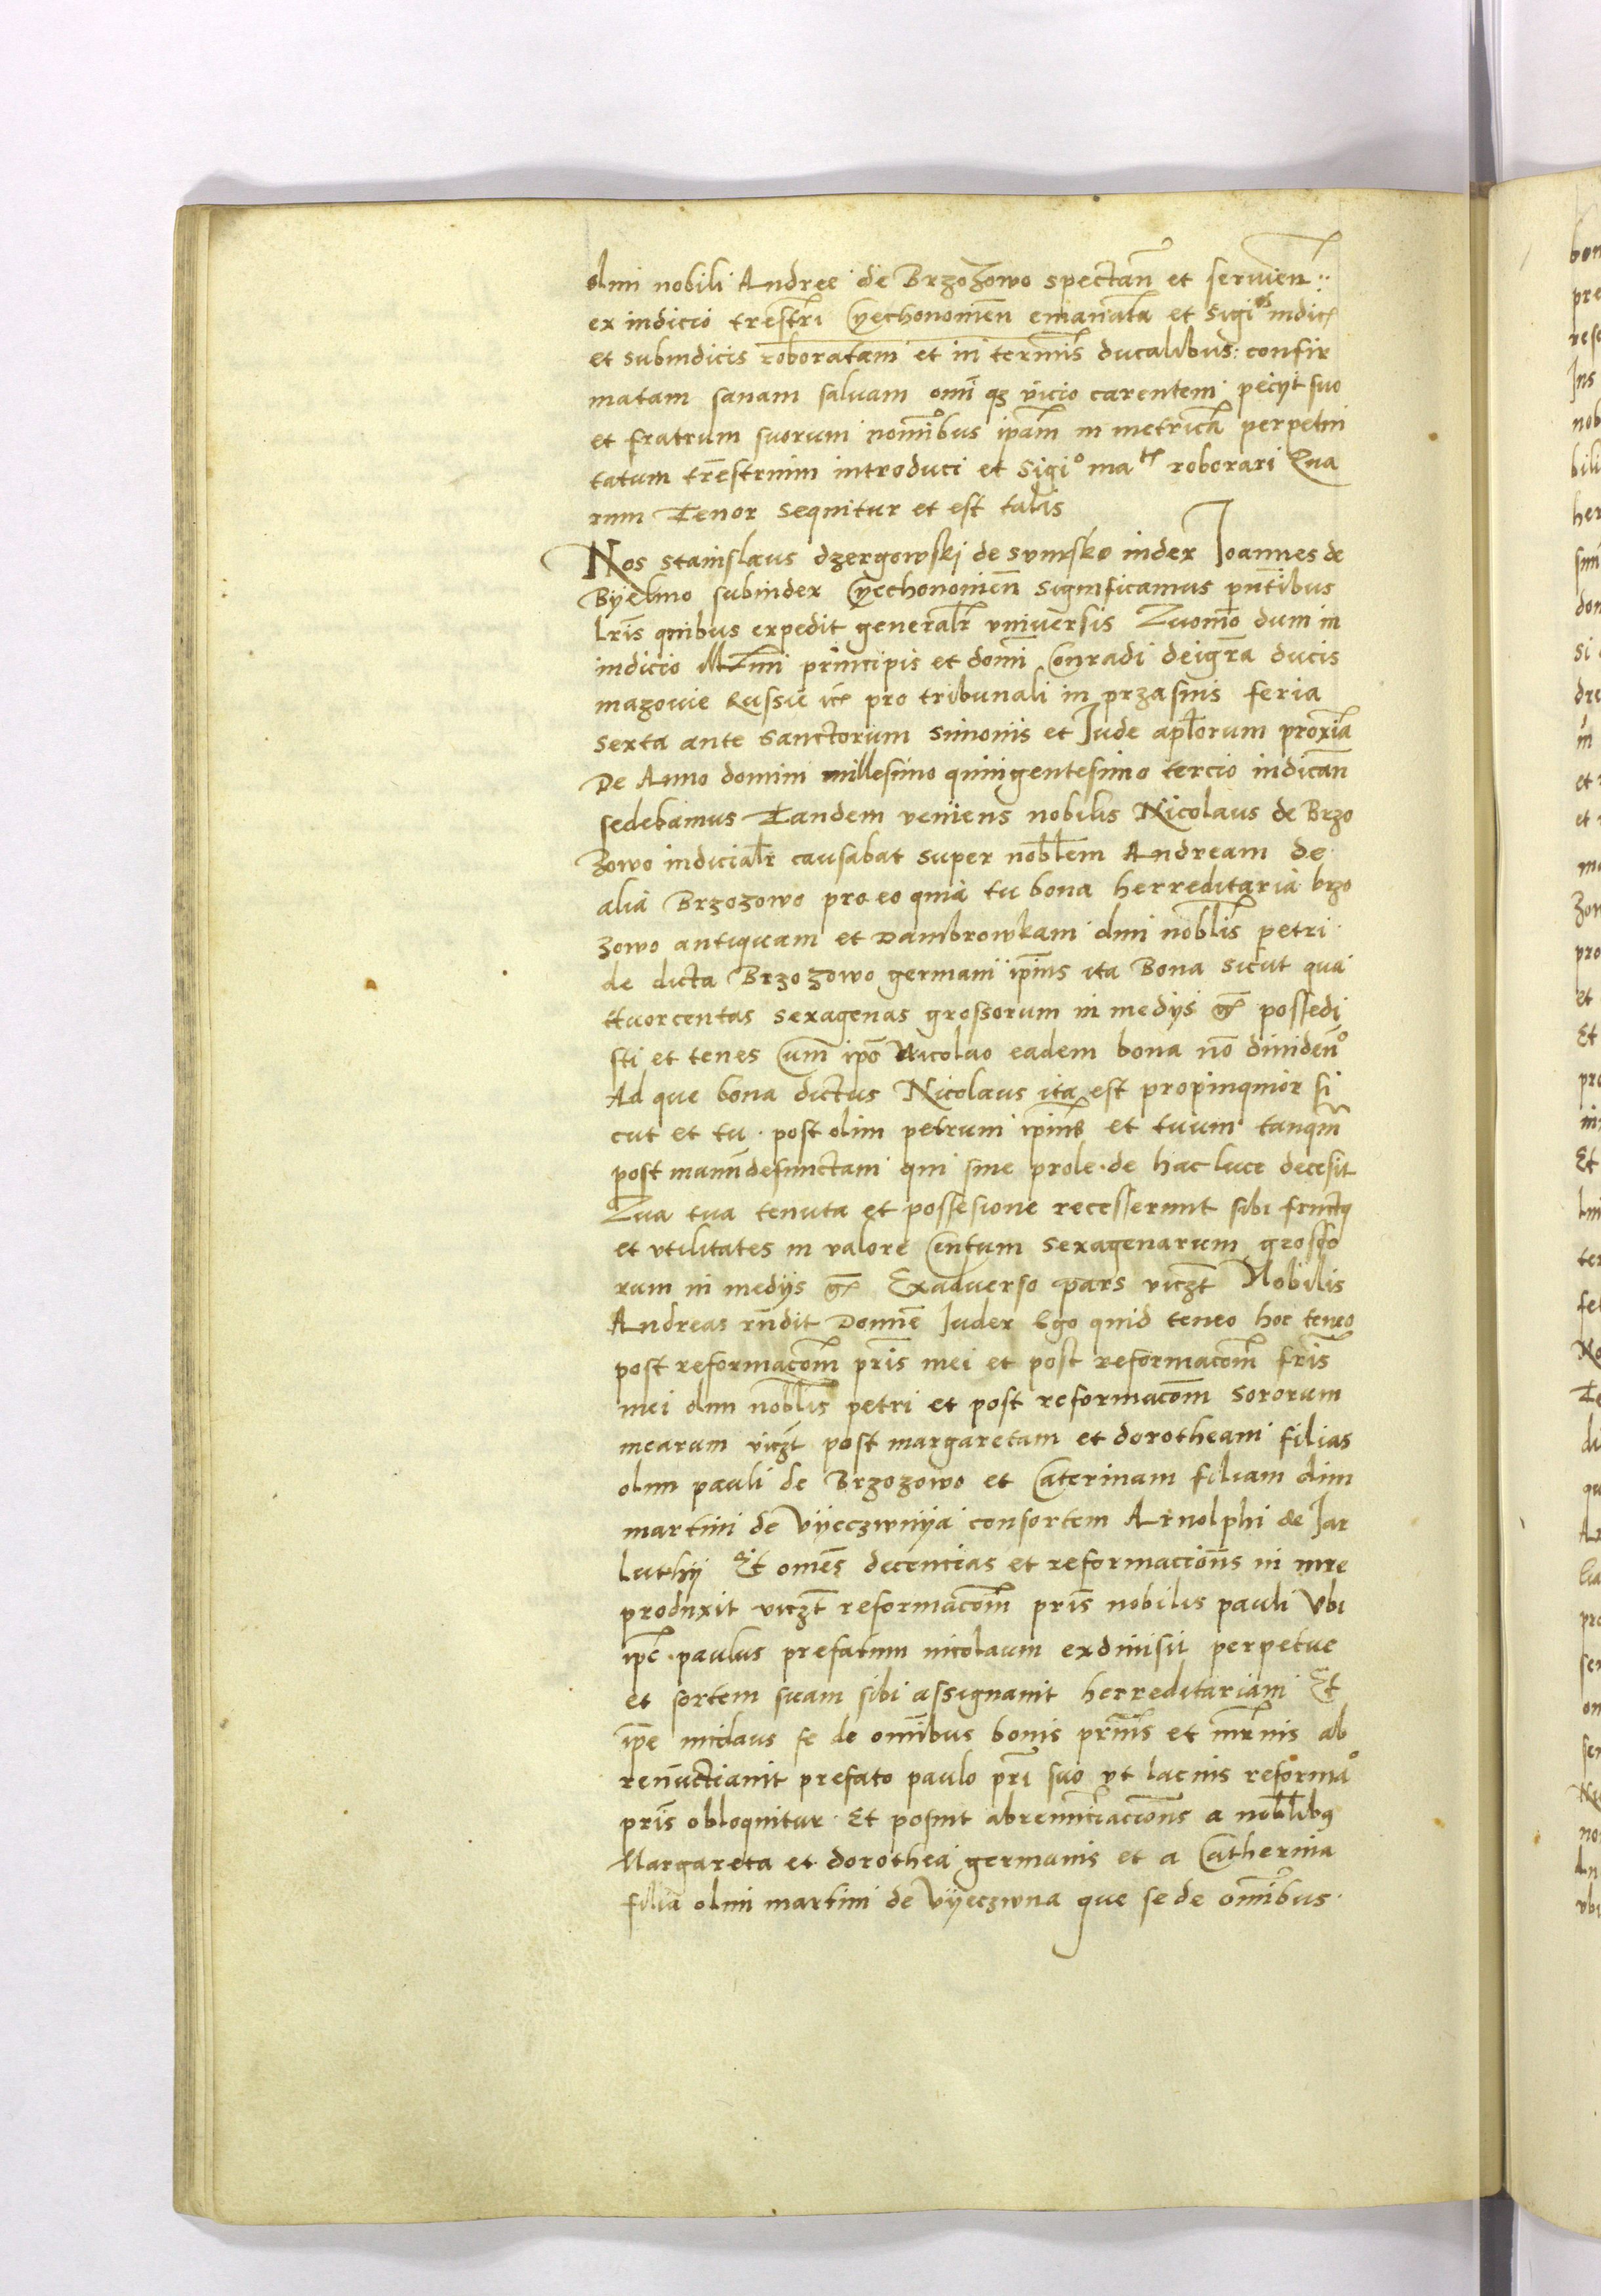 olim nobili Andree de Brzozowo spectan̄ et servien̄
ex iudicio tr̄estri Cyechonouien̄ emanatā et Sigiˡˡⁱˢ iudic̄
et subiudicis roboratam et in terminis ducalibus: confir
matam sanam salvam om̄i qȝ vicio carentem peciyt suo
et fratrum suorum nom̄ibus ip̄am in metricā perpetui
tatum tr̄estrium introduci et Sigiº maᵗⁱˢ roborari Qua
rum Tenor sequitur et est talis
Nos Stanislaus dzergowskj de Symsko iudex Joannes de
Byelino subiudex Cyechonouien̄ significamus pn̄tibus
lr̄is quibus expedit generalr̄ vniversis Quom̄o dum in
iudicio Ill᷑mi principis et dom̄i Conradi dei gr̄a ducis
mazouie Russie ꝛc̄ pro tribunali in przasnis feria
sexta ante Sanctorum Simonis et Jude apl̄orum proxīa
De Anno domini millesimo quingentesimo tercio iudican̄
sedebamus Tandem veniens nobilis Nicolaus de Brzo
zowo iudicialr̄ causabat super nobl̄em Andream de
alia Brzozowo pro eo quia tu bona herreditaria brzo
zowo antiquam et Dambrowkam olim nobl̄is petri
de dicta Brzozowo germani ip̄ius ita Bona sicut qua
ttuorcentas sexagenas grossorum in medys gr̄ possedi
sti et tenes Cum ip̄o Nicolao eadem bona nō dividen̄º
Ad que bona dictus Nicolaus ita est propinquior si
cut et tu post olim petrum ip̄ius et tuum tanqm̄
post manū defunctam qui sine prole de hac luce decesit
Qua tua tenuta et possesione recesserunt sibi fructꝯ
et vtilitates in valore Centum sexagenarum grosso
rum in medys gr̄ Exadverso pars viczt̄ Nobilis
Andreas rn̄dit Domīe Iudex Ego quid teneo hoc teneo
post reformacōm pr̄is mei et post reformacōm fr̄is
mei olim nobl̄is petri et post reformacōm sororum
mearum viczt̄ post margaretam et dorotheam filias
olim pauli de Brzozowo et Caterinam filiam olim
martini de Vyeczwnya consortem Arnolphi de Jar
luthy Et om̄es decencias et reformaciōns in iure
produxit viczt̄ reformacōm pr̄is nobilis pauli Vbi
ip̄e paulus prefatum nicolaum exdiuisit perpetue
et sortem suam sibi assignauit herreditariam Et
ip̄e nicolaus se de om̄ibus bonis pr̄nis et mr̄nis ab
renunctiauit prefato paulo pr̄i suo vt lacius reformaº
pr̄is obloquitur Et posuit abrenunciaciōns a nobl̄ibꝯ
Margareta et dorothea germanis et a Catherina
filia olim martini de Vyeczwna que se de om̄ibus